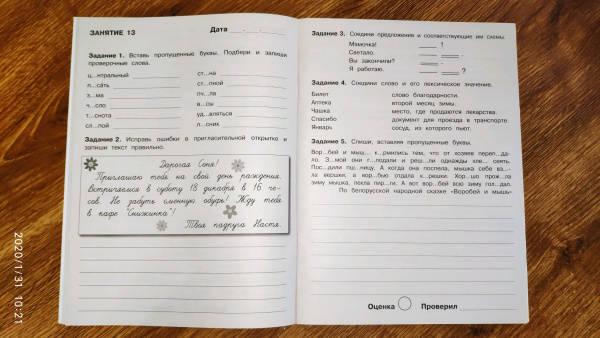 ЗАНЯТИЕ 13
Дата
Задание 1. Вставь пропущенные буквы. Подбери и запиши
проверочные слова.
ц...нтральный
п...сать
з...ма
ч...сло
т...снота
сл...пой
ст...на
ст...пной
пч...ла
в...сы
уд...вляться
л...сник
Задание 2. Исправь ошибки в пригласительной открытке и
запиши текст правильно.
Дорогая Соня!
Приглашаю тебя на свой день раждения.
Встричаемся в суботу 18 дикабря в 16 че-
сов. Не забудь сменную обувь! Жду тебя
в кафе "Снижинка"!
Твоя падруга Настя.
Задание 3. Соедини предложения и соответствующие им схемы.
Мамочка! !
Светало. .
Вы закончили? .
Я работаю. ?
Задание 4. Соедини слово и его лексическое значение.
Билет слово благодарности.
Аптека второй месяц зимы.
Чашка место, где продаются лекарства.
Спасибо документ для проезда в транспорте.
Январь сосуд, из которого пьют.
Задание 5. Спиши, вставляя пропущенные буквы.
Вор...бей и мыш... к...рмились тем, что от хозяев перепа-
ло. З...мой они г...лодали и реш...ли однажды хле... сеять.
Пос...дили пш...ницу. А когда она поспела, мышка себе вз...-
ла вершки, а вор...бью отдала к...решки. Хор...шо прож...ла
зиму мышка, пекла пир...ги. А вот вор...бей всю зиму гол...дал.
По белорусской народной сказке «Воробей и мышь»
Оценка Проверил
2020/1/31 10:21